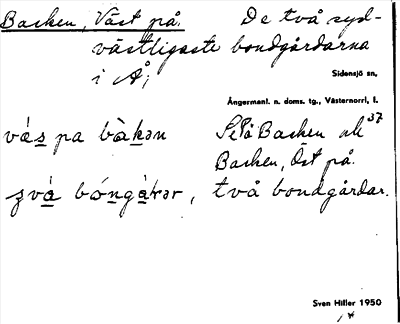 Backen, Väst på. De två syd-
västligaste bondgårdarna
i Å,
Sidensjö sn,
Ångermanl. n. doms. tg., Västernorrl. l.
vás pa bàkən Se På Backen ok 37
Backen, Öst på.
två bóngàkər, två bondgårdar.
Sven Hiller 1950